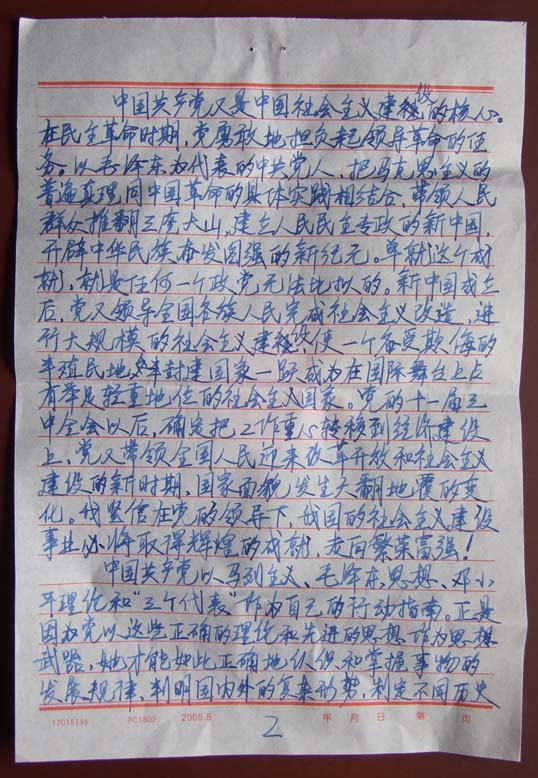 中国共产党又是中国社会主义建设的核心。
在民主革命时期，党勇敢地担负起领导革命的任
务。以毛泽东为代表的中共党人，把马克思主义的
普遍真理同中国革命的具体实践相结合，带领人民
群众推翻三座大山，建立人民民主专政的新中国，
开辟中华民族奋发图强的新纪元。单就这个成
就，就是任何一个政党无法比拟的。新中国成立
后，党又领导全国各族人民完成社会主义改造，进
行大规模的社会主义建设，使一个备受欺侮的
半殖民地半封建国家一跃成为在国际舞台上占
有举足轻重地位的社会主义国家。党的十一届三
中全会以后，确定把工作重心转移到经济建设
上，党又带领全国人民迎来改革开放和社会主义
建设的新时期，国家面貌发生天翻地覆的变
化。我坚信在党的领导下，我国的社会主义建设
事业必将取得辉煌的成就，走向繁荣富强！
中国共产党以马列主义、毛泽东思想、邓小
平理论和“三个代表”作为自己的行动指南。正是
因为党以这些正确的理论和先进的思想作为思想
武器，她才能如此正确地认识和掌握事物的
发展规律，判明国内外的复杂形势，制定不同历史
17015146 PC1802 2005.8 年 月 日 第 页
2